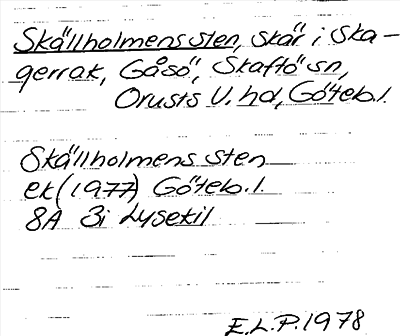 Skällholmens sten, skär i Ska-
gerrak, Gåsö, Skaftö sn,
Orusts V. hd, Göteb. l.
Skällholmens sten
ek (1977) Göteb. l.
8A 3i Lysekil
E.L.P. 1978